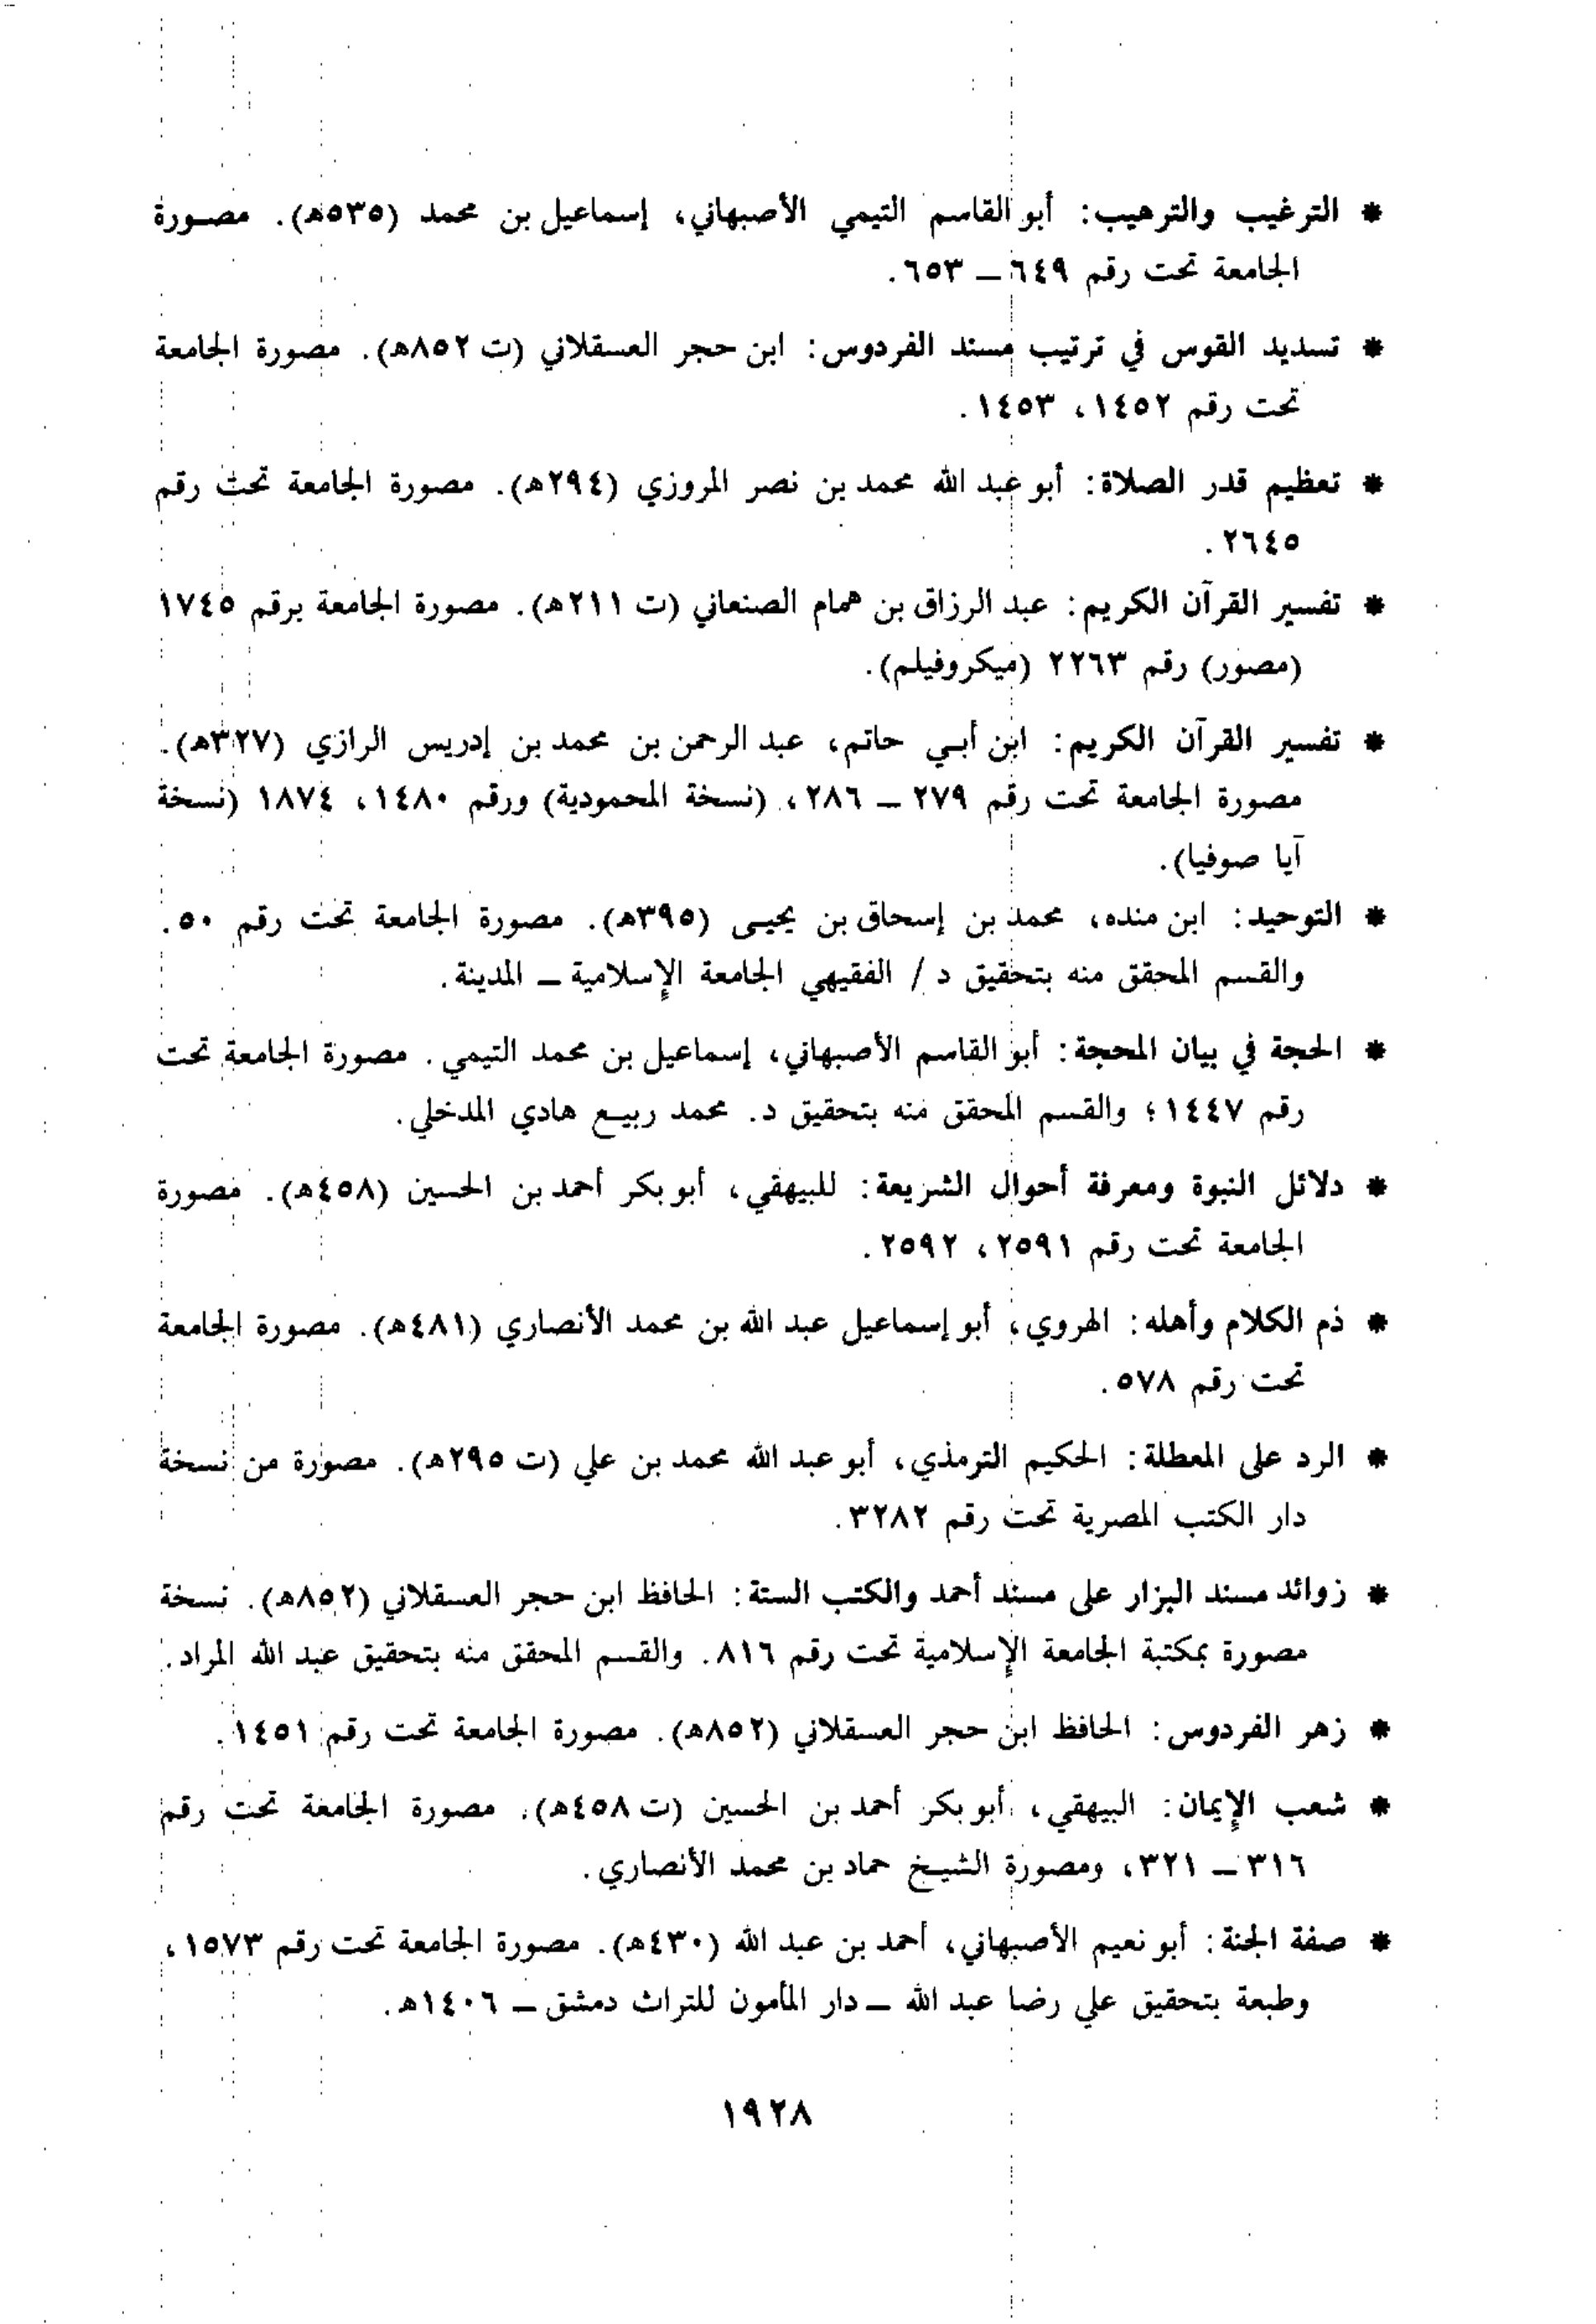 * الترغيب والترهيب: أبو القاسم التيمي الأصبهاني، إسماعيل بن محمد (٥٣٥هـ). مصورة
الجامعة تحت رقم ٦٤٩ ــ ٦٥٣.
* تسديد القوس في ترتيب مسند الفردوس: ابن حجر العسقلاني (ت ٨٥٢هـ). مصورة الجامعة
تحت رقم ١٤٥٢، ١٤٥٣.
* تعظيم قدر الصلاة: أبو عبد الله محمد بن نصر المروزي (٢٩٤هـ). مصورة الجامعة تحت رقم
٢٦٤٥.
* تفسير القرآن الكريم: عبد الرزاق بن همام الصنعاني (ت ٢١١هـ). مصورة الجامعة برقم ١٧٤٥
(مصور) رقم ٢٢٦٣ (ميكروفيلم).
* تفسير القرآن الكريم: ابن أبي حاتم، عبد الرحمن بن محمد بن إدريس الرازي (٣٢٧هـ).
مصورة الجامعة تحت رقم ٢٧٩ ــ ٢٨٦، (نسخة المحمودية) ورقم ١٤٨٠، ١٨٧٤ (نسخة
آيا صوفيا).
* التوحيد: ابن منده، محمد بن إسحاق بن يحيى (٣٩٥هـ). مصورة الجامعة تحت رقم ٥٠.
والقسم المحقق منه بتحقيق د / الفقيهي الجامعة الإسلامية ــ المدينة.
* الحجة في بيان المحجة: أبو القاسم الأصبهاني، إسماعيل بن محمد التيمي. مصورة الجامعة تحت
رقم ١٤٤٧؛ والقسم المحقق منه بتحقيق د. محمد ربيع هادي المدخلي.
* دلائل النبوة ومعرفة أحوال الشريعة: للبيهقي، أبو بكر أحمد بن الحسين (٤٥٨هـ). مصورة
الجامعة تحت رقم ٢٥٩١، ٢٥٩٢.
* ذم الكلام وأهله: الهروي، أبو إسماعيل عبد الله بن محمد الأنصاري (٤٨١هـ). مصورة الجامعة
تحت رقم ٥٧٨.
* الرد على المعطلة: الحكيم الترمذي، أبو عبد الله محمد بن علي (ت ٢٩٥هـ). مصورة من نسخة
دار الكتب المصرية تحت رقم ٣٢٨٢.
* زوائد مسند البزار على مسند أحمد والكتب الستة: الحافظ ابن حجر العسقلاني (٨٥٢هـ). نسخة
مصورة بمكتبة الجامعة الإسلامية تحت رقم ٨١٦. والقسم المحقق منه بتحقيق عبد الله المراد.
* زهر الفردوس: الحافظ ابن حجر العسقلاني (٨٥٢هـ). مصورة الجامعة تحت رقم ١٤٥١.
* شعب الإيمان: البيهقي، أبو بكر أحمد بن الحسين (ت ٤٥٨هـ). مصورة الجامعة تحت رقم
٣١٦ ــ ٣٢١، ومصورة الشيخ حماد بن محمد الأنصاري.
* صفة الجنة: أبو نعيم الأصبهاني، أحمد بن عبد الله (٤٣٠هـ). مصورة الجامعة تحت رقم ١٥٧٣،
وطبعة بتحقيق علي رضا عبد الله ــ دار المأمون للتراث دمشق ــ ١٤٠٦هـ.
١٩٢٨